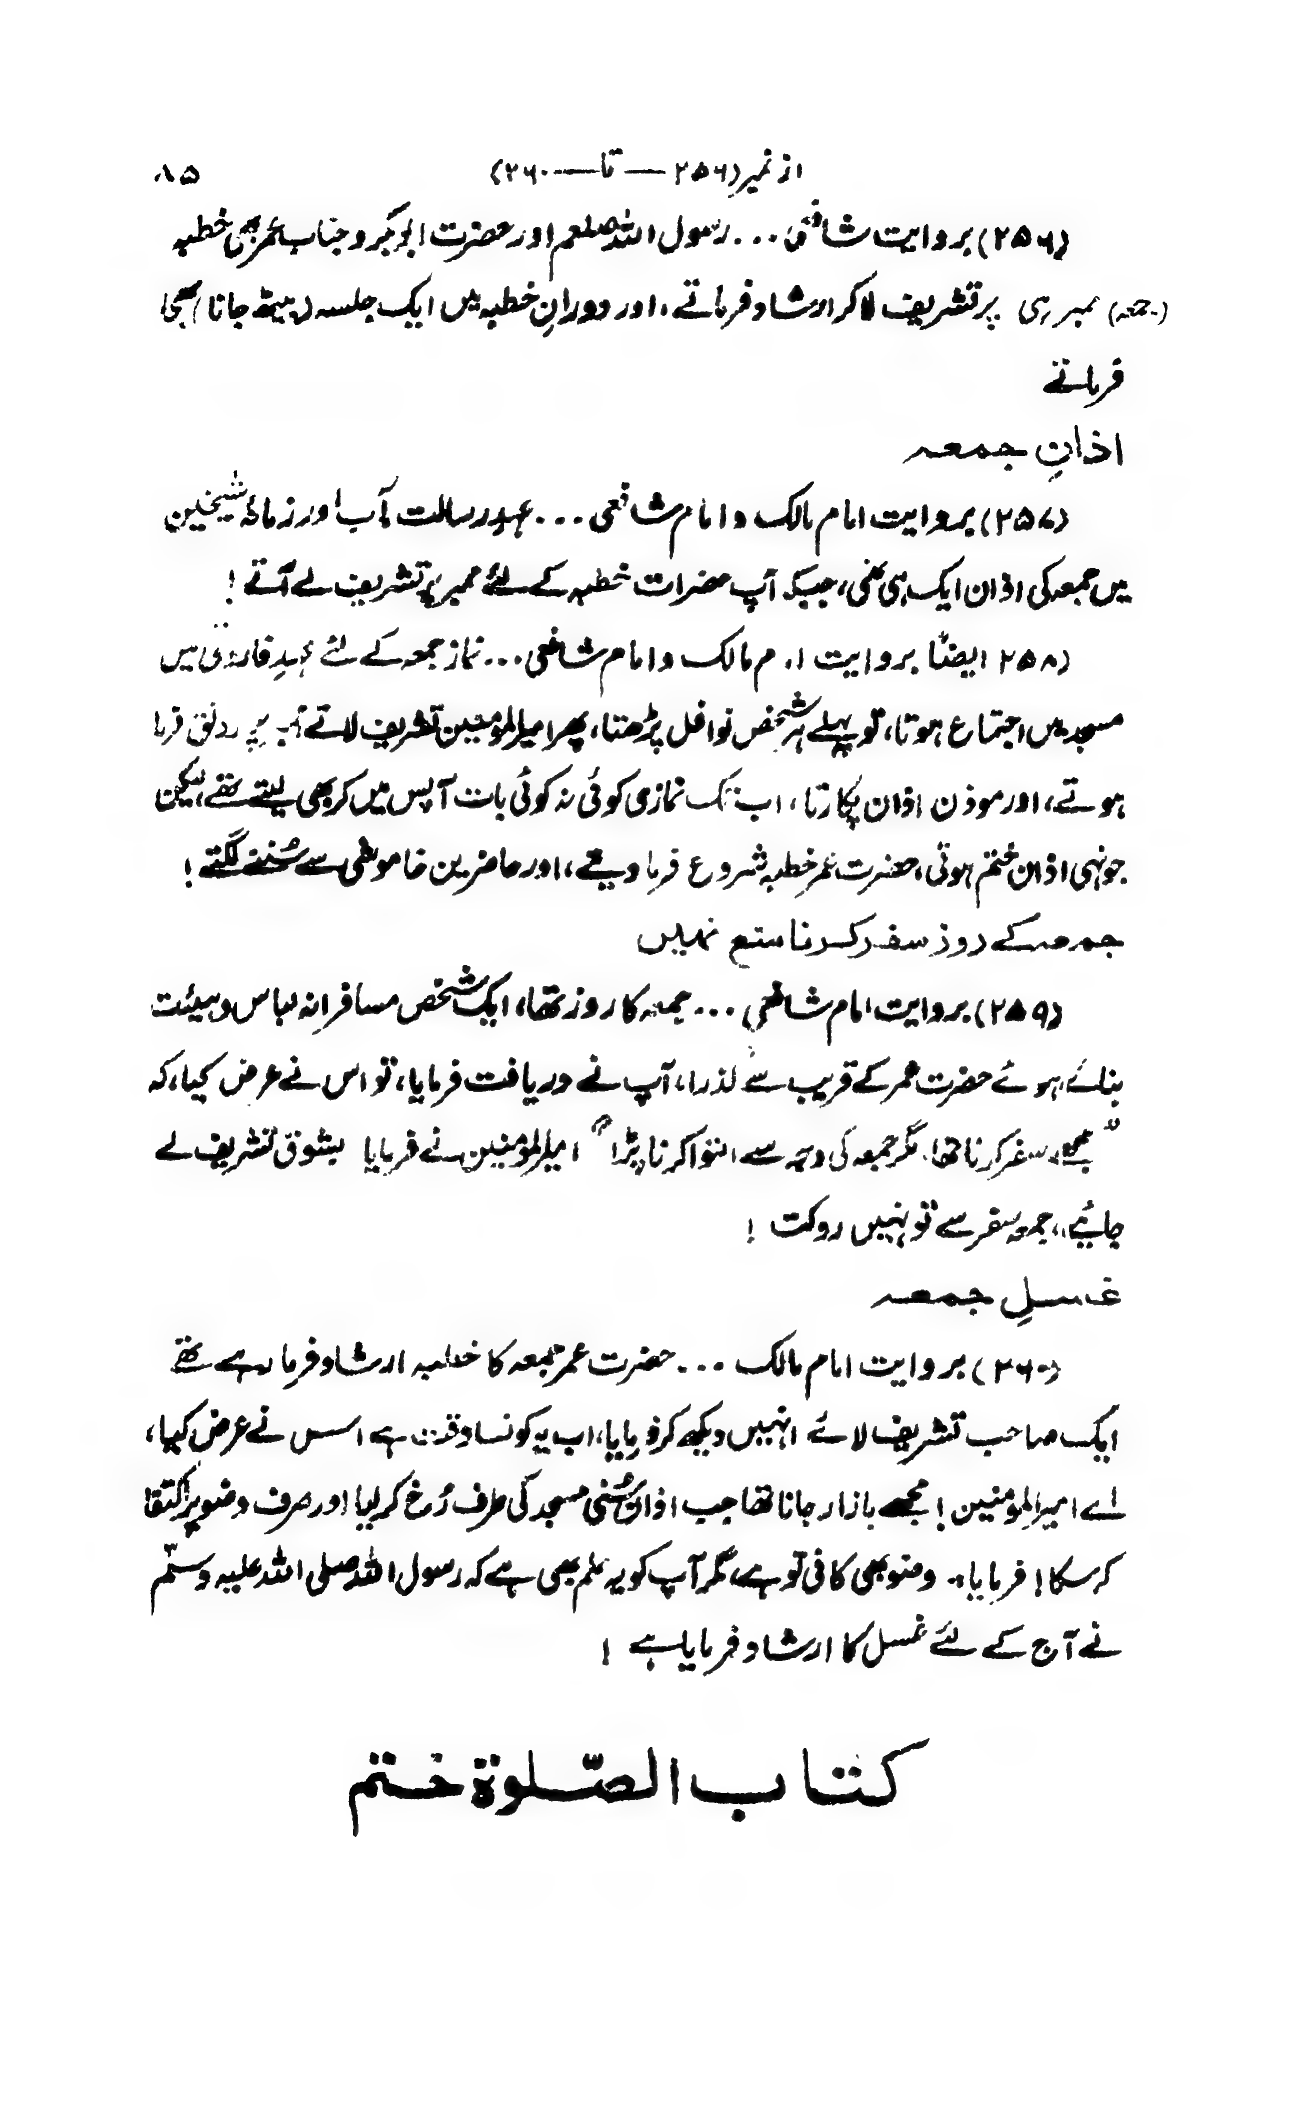 از نمبر (۲۵۶ — تا — ۲۶۰) ۸۵
(۲۵۶) بروایت شافعی ... رسول اللہ صلعم اور حضرت ابوبکر و جناب عمر بھی خطبہ
(جمعہ) ممبر ہی پر تشریف لا کر ارشاد فرماتے، اور دورانِ خطبہ میں ایک جلسہ (بیٹھ جانا) بھی
فرماتے
اذانِ جمعہ
(۲۵۷) بروایت امام مالک و امام شافعی ... عہد رسالت مآب اور زمانۂ شیخین
میں جمعہ کی اذان ایک ہی تھی، جبکہ آپ حضرات خطبہ کے لئے ممبر پر تشریف لے آتے !
(۲۵۸ ایضاً بروایت امام مالک و امام شافعی ... نماز جمعہ کے لئے عہدِ فاروقی میں
مسجد میں اجتماع ہوتا، تو پہلے ہر شخص نوافل پڑھتا، پھر امیرالمؤمنین تشریف لاتے ممبر پر رونق فرما
ہوتے، اور موذن اذان پکارتا، اب تک نمازی کوئی نہ کوئی بات آپس میں کر بھی لیتے تھے، لیکن
جونہی اذان ختم ہوتی، حضرت عمر خطبہ شروع فرما دیتے، اور حاضرین خاموشی سے سُننے لگتے !
جمعہ کے روز سفر کرنا منع نہیں
(۲۵۹) بروایت امام شافعی ... جمعہ کا روز تھا، ایک شخص مسافرانہ لباس و ہیئت
بنائے ہوئے حضرت عمر کے قریب سے گذرا، آپ نے دریافت فرمایا، تو اس نے عرض کیا، کہ
”مجھے سفر کرنا تھا، مگر جمعہ کی وجہ سے التوا کرنا پڑا“ امیرالمؤمنین نے فرمایا بشوق تشریف لے
جائیے، جمعہ سفر سے تو نہیں روکت !
غسلِ جمعہ
(۲۶۰) بروایت امام مالک ... حضرت عمر جمعہ کا خطبہ ارشاد فرما رہے تھے
ایک صاحب تشریف لائے انہیں دیکھ کر فرمایا، اب یہ کونسا وقت ہے اس نے عرض کیا،
اے امیرالمؤمنین ! مجھے بازار جانا تھا جب اذان سُنی مسجد کی طرف رُخ کر لیا اور صرف وضو پر اکتفا
کر سکا ! فرمایا، وضو بھی کافی تو ہے، مگر آپ کو یہ علم بھی ہے کہ رسول اللہ صلی اللہ علیہ وسلّم
نے آج کے لئے غسل کا ارشاد فرمایا ہے !
کتاب الصّلوۃ ختم